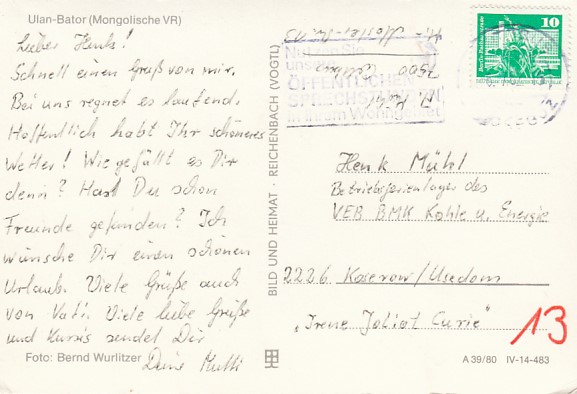 Ulan-Bator (Mongolische VR)
Lieber Henk!
Schnell einen Gruß von mir.
Bei uns regnet es laufend.
Hoffentlich habt Ihr schöneres
Wetter! Wie gefällt es Dir
denn? Hast Du schon
Freunde gefunden? Ich
wünsche Dir einen schönen
Urlaub. Viele Grüße auch
von Vati. Viele liebe Grüße
und Kussis sendet Dir
Deine Mutti
Foto: Bernd Wurlitzer
BILD UND HEIMAT · REICHENBACH (VOGTL)
10
Nutzen Sie
unsere
ÖFFENTLICHEN
in Ihrem Wohngebiet
Henk Mühl
Betriebsferienlager des
VEB BMK Kohle u. Energie
2226 Koserow/Usedom
"Irene Joliot Curie"
13
A 39/80 IV-14-483